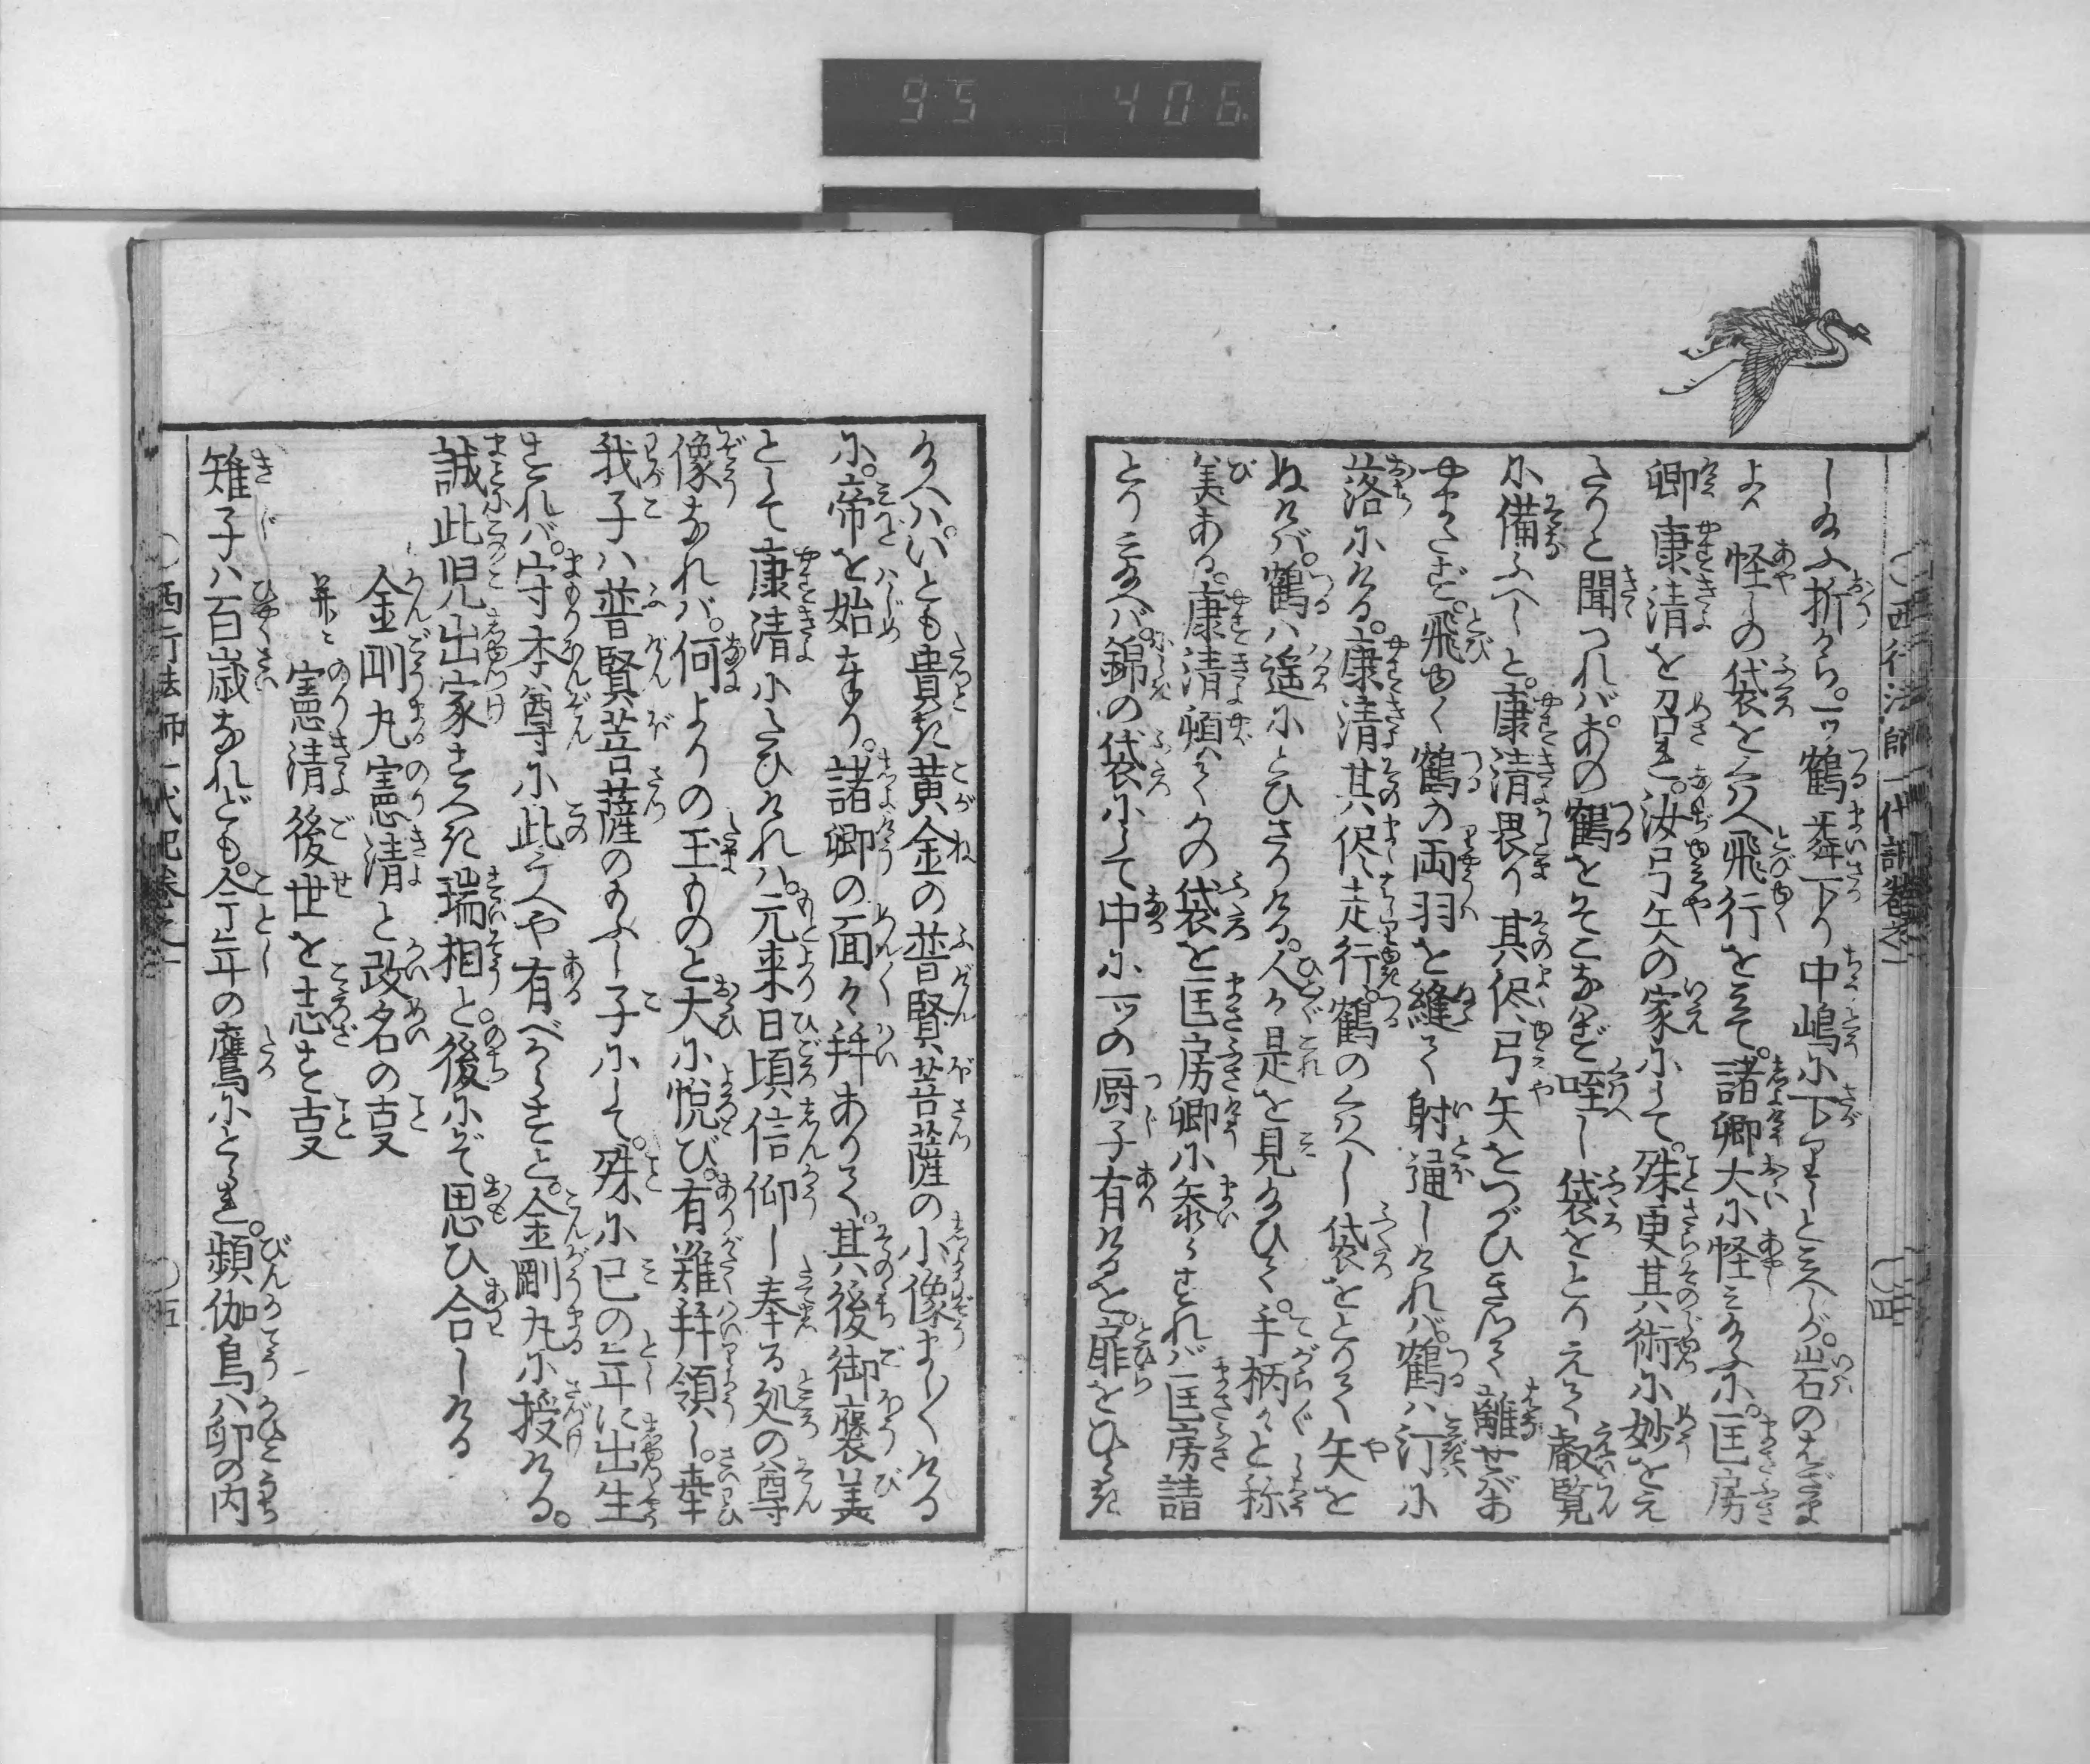 95 406
西行法師一代記巻之一
四
しゐふ折から。一ツ鶴舞下り中嶋に下りしとミへしが。岩のはざま
より怪しの袋をくハへ飛行をミて。諸卿大に怪ミ給ふに。匡房
卿康清を召され。汝弓矢の家にして。殊更其術に妙をえ
たりと聞つれバ。あの鶴をそこなハず咥し袋をとりえて叡覧
に備ふべしと。康清畏り其侭弓矢をつがひきつて離せバあ
やまたず。飛ゆく鶴の両羽を縫て射通しけれバ。鶴ハ汀に
落にける。康清其侭走行。鶴のくハへし袋をとりて矢を
ぬけバ。鶴ハ遥にとびさりける。人々是を見給ひて。手柄々と称
美ある。康清頓てかの袋を匡房卿に参らされバ匡房詰
とりミ給へバ。錦の袋にして中に一ツの厨子有けるを。扉をひらき
給へバ。いとも貴き黄金の普賢菩薩の小像ましくける
に。帝を始奉り。諸卿の面々拝ありて。其後御褒美
として康清にたびけれハ。元来日頃信仰し奉る処の尊
像なれバ。何よりの玉ものと大に悦び。有難拝領し。幸
我子ハ普賢菩薩のまふし子にして。殊に巳の年に出生
すれバ。守本尊に此うへや有べからずと。金剛丸に授ける。
誠此児出家すべき瑞相と後にぞ思ひ合しける
金剛丸憲清と改名の事
并ニ憲清後世を志す事
雉子ハ百歳なれども。今年の鷹にとられ。頻伽鳥ハ卵の内
西行法師一代記巻之一
五